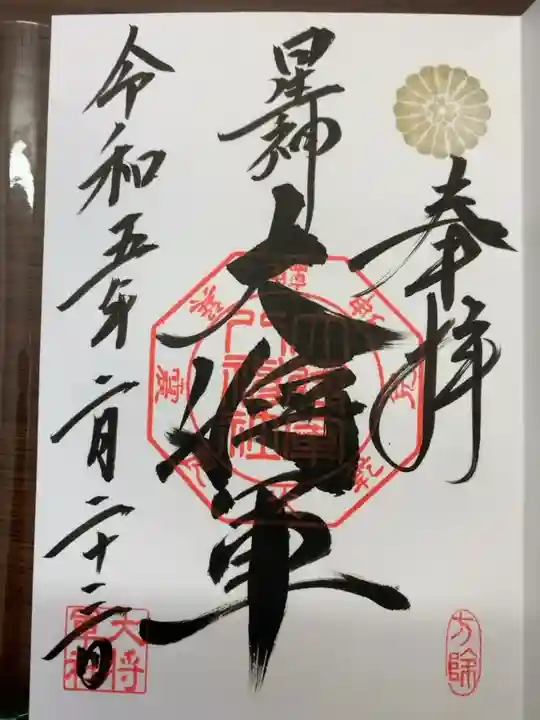 奉拝
星神
大将軍
令和五年二月二十二日
大将
軍神
方除